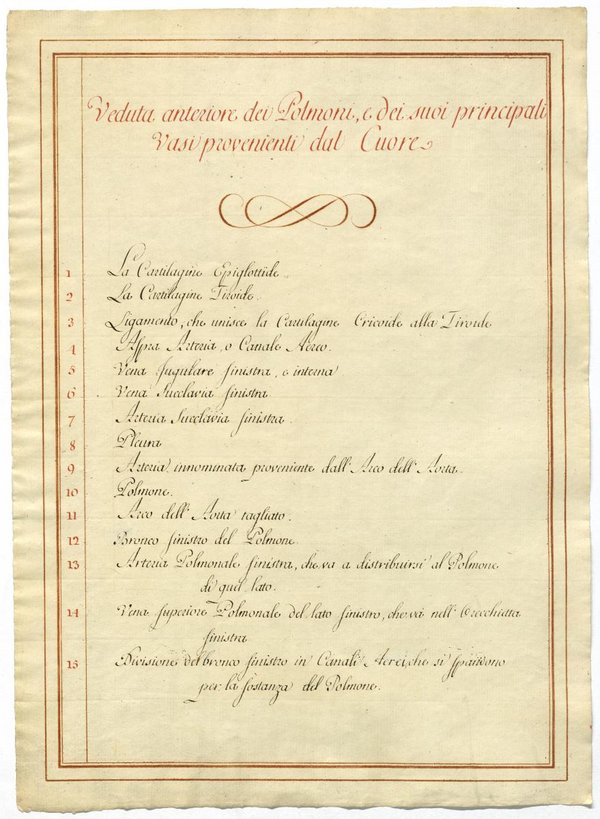 Veduta anteriore dei Polmoni, e dei suoi principali
Vasi provenienti dal Cuore
1 La Cartilagine Epiglottide.
2 La Cartilagine Tiroide.
3 Ligamento, che unisce la Cartilagine Cricoide alla Tiroide
4 Aſpra Arteria, o Canale Aereo.
5 Vena Jugulare ſiniſtra, e interna
6 Vena Succlavia ſiniſtra
7 Arteria Succlavia ſiniſtra.
8 Pleura
9 Arteria innominata proveniente dall' Arco dell' Aorta.
10 Polmone.
11 Arco dell' Aorta tagliato.
12 Bronco ſiniſtro del Polmone.
13 Arteria Polmonale ſiniſtra, che va a distribuirsi al Polmone
di quel lato.
14 Vena ſuperiore Polmonale del lato ſiniſtro, che va nell' Orecchietta
ſiniſtra
15 Divisione del bronco ſiniſtro in Canali Aerei, che si ſpandono
per la ſostanza del Polmone.